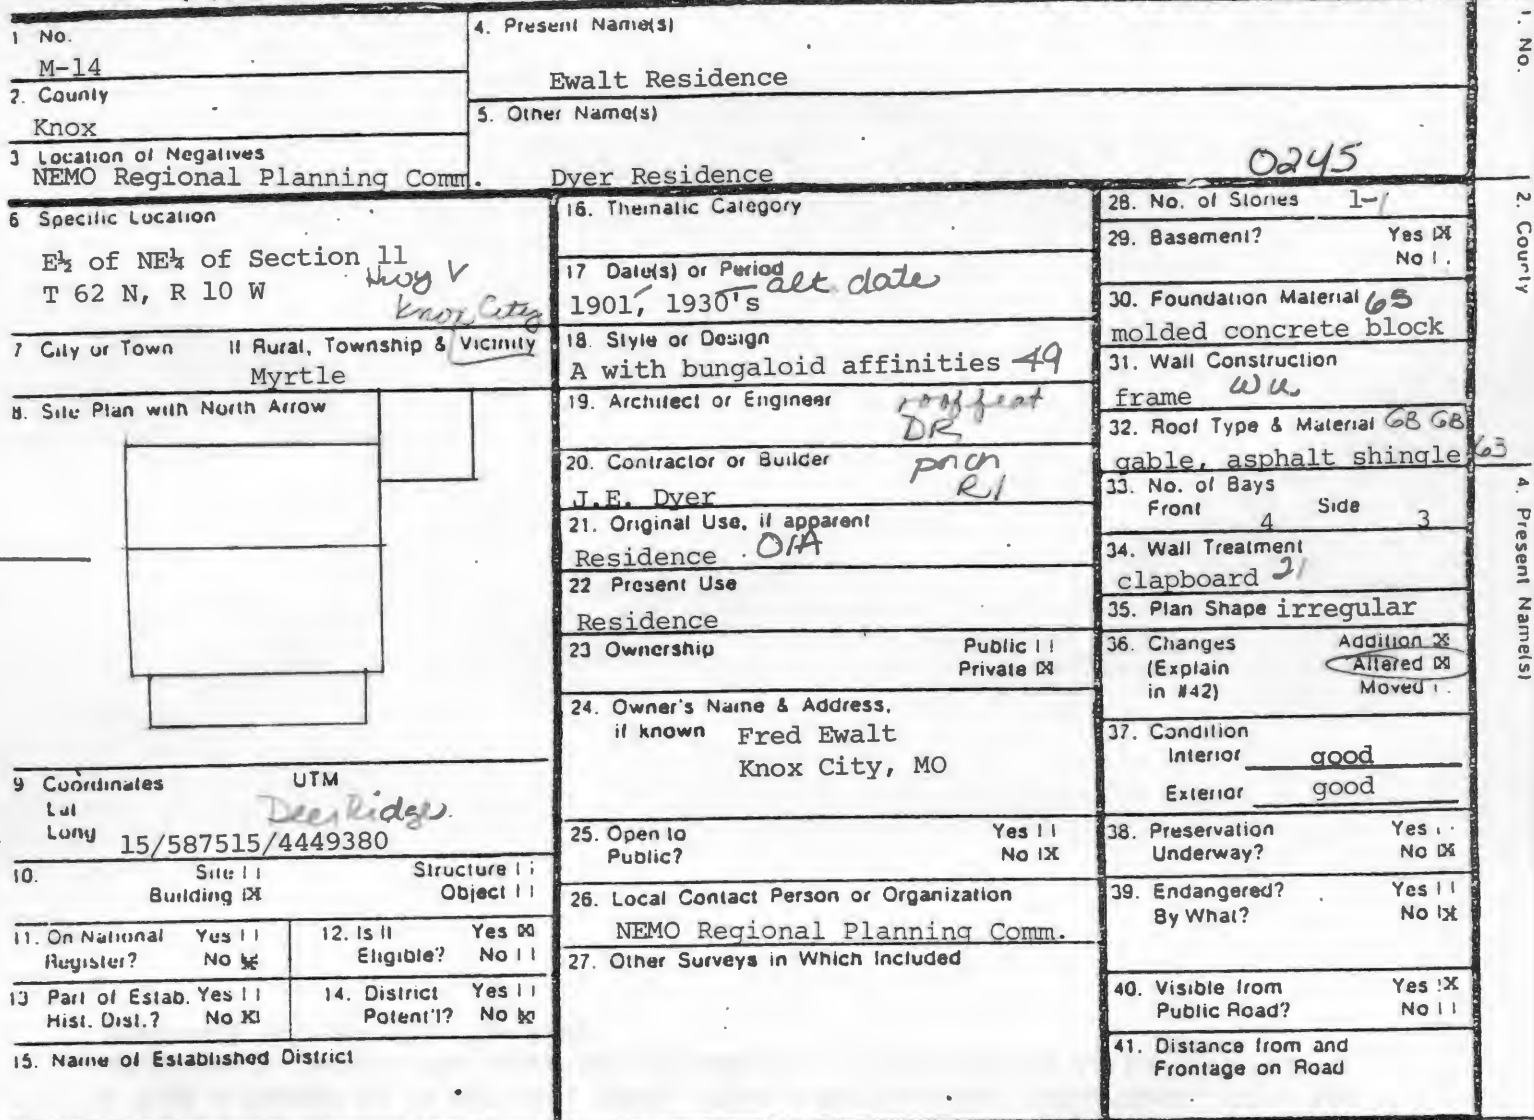 1 No.
M-14
2. County
Knox
3 Location of Negatives
NEMO Regional Planning Comm.
4. Present Name(s)
Ewalt Residence
5. Other Name(s)
Dyer Residence
0245
6 Specific Location
E½ of NE¼ of Section 11
T 62 N, R 10 W
Hwy V
Knox City
7 City or Town If Rural, Township & Vicinity
Myrtle
8. Site Plan with North Arrow
9 Coordinates UTM
Lat
Long
Deer Ridge
15/587515/4449380
10. Site | | Structure | |
Building |X| Object | |
11. On National Register? Yes | | No |X|
12. Is It Eligible? Yes |X| No | |
13 Part of Estab. Hist. Dist.? Yes | | No |X|
14. District Potent'l? Yes | | No |X|
15. Name of Established District
16. Thematic Category
17 Date(s) or Period
alt. date
1901, 1930's
18. Style or Design
A with bungaloid affinities 49
19. Architect or Engineer
roof feat
DR
20. Contractor or Builder
J.E. Dyer
porch
R1
21. Original Use, if apparent
Residence 01A
22 Present Use
Residence
23 Ownership Public | |
Private |X|
24. Owner's Name & Address,
if known Fred Ewalt
Knox City, MO
25. Open to Public? Yes | | No |X|
26. Local Contact Person or Organization
NEMO Regional Planning Comm.
27. Other Surveys in Which Included
28. No. of Stories 1-1
29. Basement? Yes |X|
No | |
30. Foundation Material 65
molded concrete block
31. Wall Construction
frame WU
32. Roof Type & Material GB GB
gable, asphalt shingle 63
33. No. of Bays
Front 4 Side 3
34. Wall Treatment
clapboard 21
35. Plan Shape irregular
36. Changes (Explain in #42) Addition |X|
Altered |X|
Moved | |
37. Condition
Interior good
Exterior good
38. Preservation Underway? Yes | | No |X|
39. Endangered? By What? Yes | | No |X|
40. Visible from Public Road? Yes |X| No | |
41. Distance from and
Frontage on Road
1. No.
2. County
4. Present Name(s)